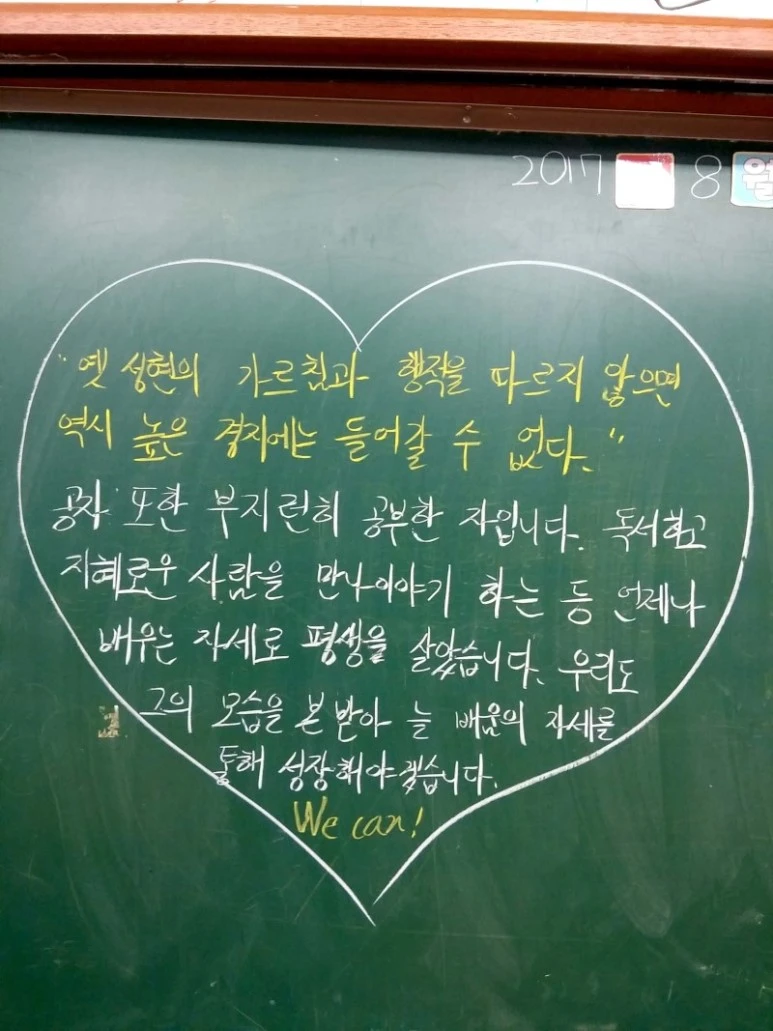 2017 8 월
"옛 성현의 가르침과 행적을 따르지 않으면
역시 높은 경지에는 들어갈 수 없다."
공자 또한 부지런히 공부한 자입니다. 독서하고
지혜로운 사람을 만나 이야기 하는 등 언제나
배우는 자세로 평생을 살았습니다. 우리도
그의 모습을 본받아 늘 배움의 자세를
통해 성장해야겠습니다.
We can!